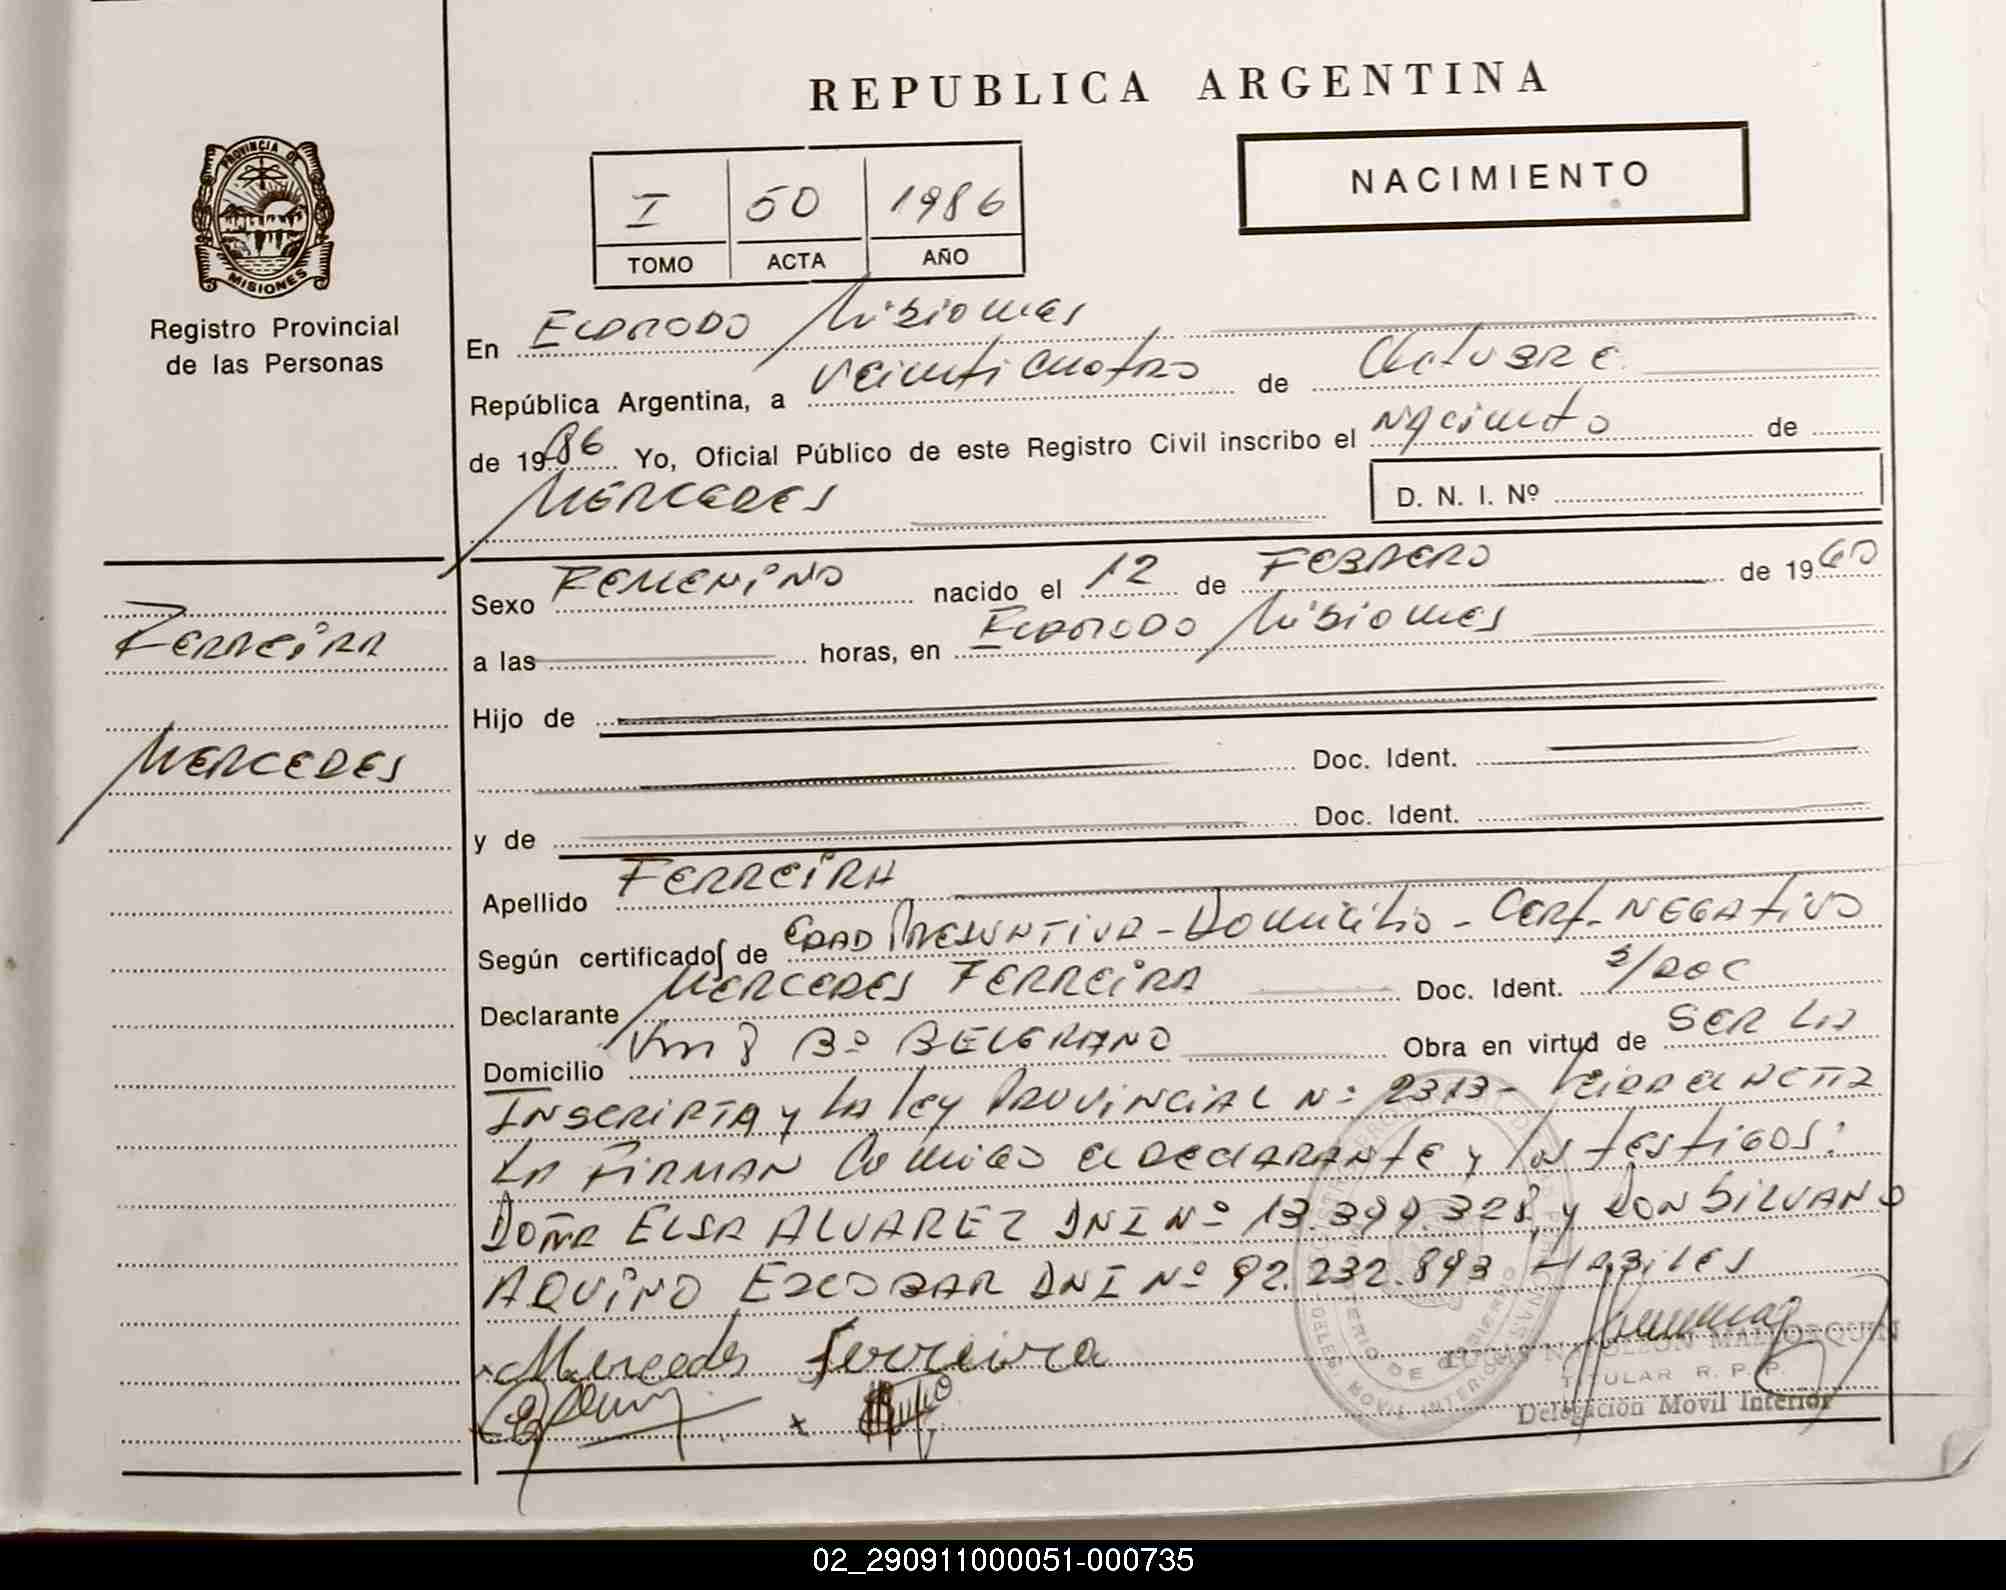 REPUBLICA ARGENTINA
PROVINCIA DE
MISIONES
Registro Provincial
de las Personas
NACIMIENTO
I 50 1986
TOMO ACTA AÑO
En ELDORADO Misiones
República Argentina, a veinticuatro de Octubre
de 1986 Yo, Oficial Público de este Registro Civil inscribo el Nacimto de
MERCEDES
D. N. I. Nº
FERREIRA
MERCEDES
Sexo FEMENINO nacido el 12 de FEBRERO de 1960
a las horas, en ELDORADO Misiones
Hijo de
Doc. Ident.
y de Doc. Ident.
Apellido FERREIRA
Según certificados de EDAD PRESUNTIVA - DOMICILIO - CERT. NEGATIVO
Declarante MERCEDES FERREIRA Doc. Ident. S/DOC
Domicilio Km 8 Bº BELGRANO Obra en virtud de SER LA
INSCRIPTA y LA ley PROVINCIAL Nº 2313 - Leida el ACTA
LA FIRMAN Conmigo el DECLARANTE y los testigos:
DOÑA ELSA ALVAREZ DNI Nº 13.399.328 y DON SILVANO
AQUINO ESCOBAR DNI Nº 92.232.893 HABILES
Mercedes Ferreira
NAPOLEON MALLORQUIN
TITULAR R. P. P.
Delegación Movil Interior
02_290911000051-000735